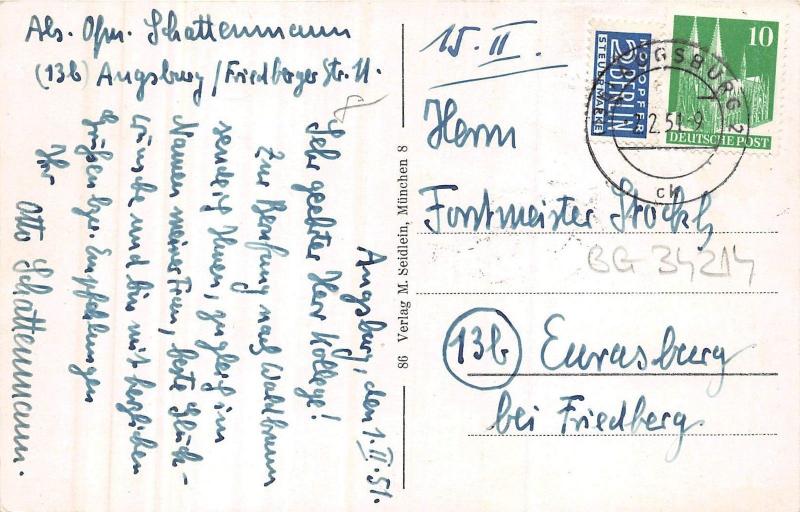 Abs. Ofm. Schattenmann
(13b) Augsburg / Friedberger Str. 11
Augsburg, den 1.II.51.
Sehr geehrter Herr Kollege!
Zur Berufung nach Waldbrunn
sende ich Ihnen, zugleich im
Namen meiner Frau, beste Glück-
wünsche und bin mit herzlichen
Grüßen bzw. Empfehlungen
Ihr Otto Schattenmann.
86 Verlag M. Seidlein, München 8
15.II.
NOTOPFER
2 BERLIN
STEUERMARKE
10
DEUTSCHE POST
AUGSBURG 2
2.51-9
ck
Herrn
Forstmeister
BG 34214
(13b) Eurasburg
bei Friedberg.